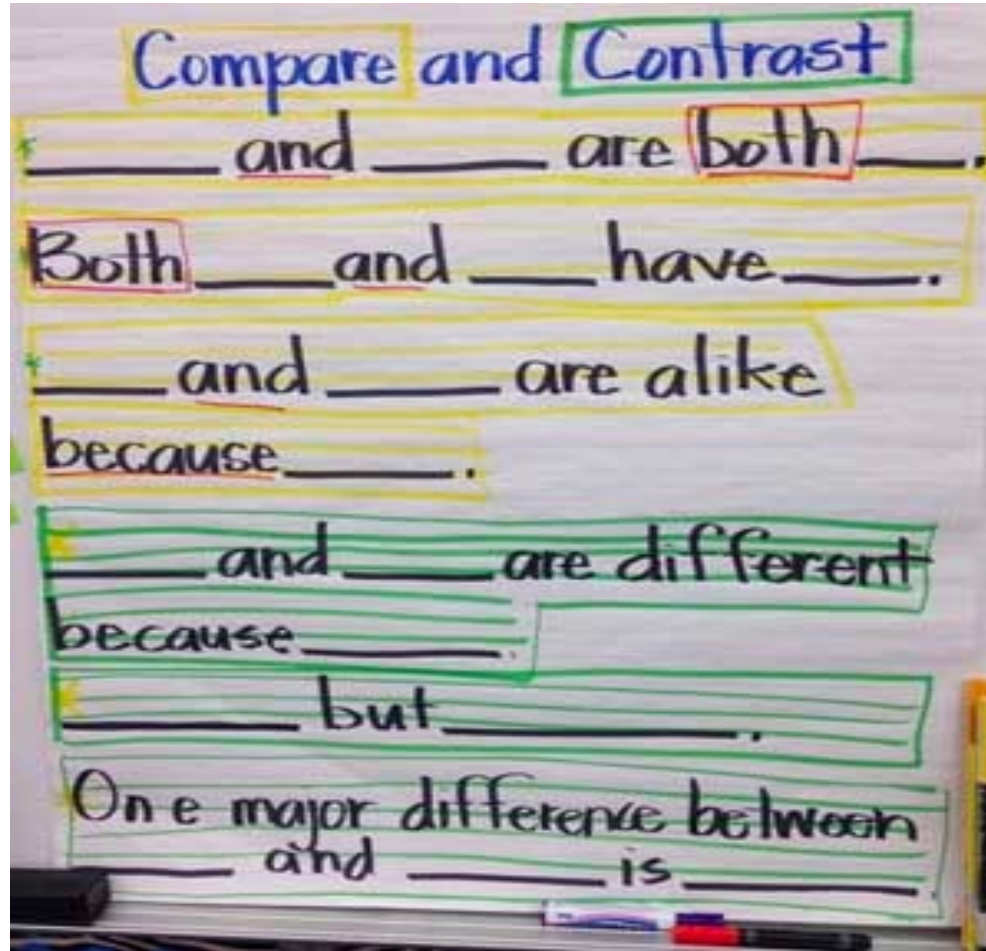 Compare and Contrast
_____ and _____ are both ___.
Both ____ and ____ have ____.
____ and _____ are alike
because _____.
_____ and ____ are different
because _____.
_______ but _________.
One major difference between
_____ and _____ is _______.